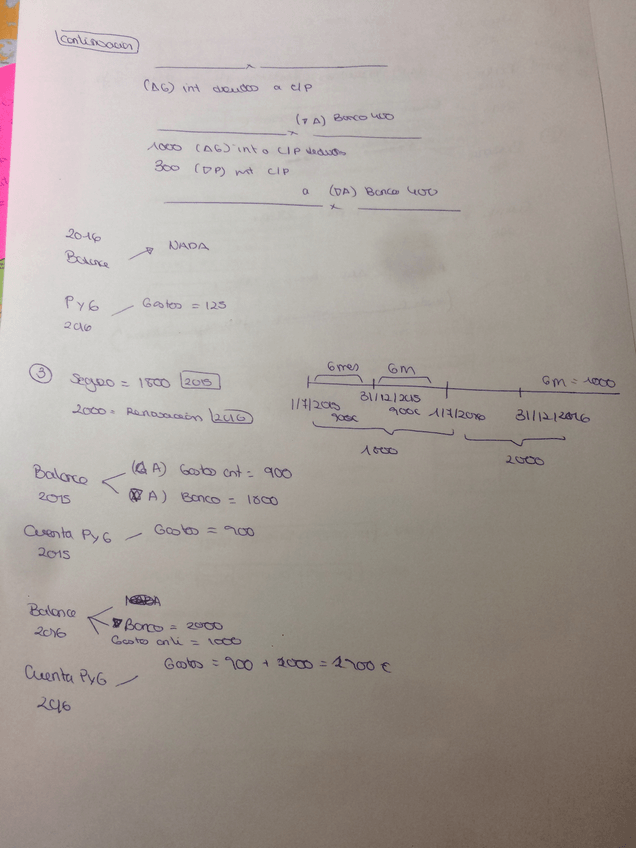 continuación
(ΔG) int deudas a c/p
(∇ A) Banco 400
1000 (ΔG) int a C/P deudas
300 (DP) int C/P
a (DA) Banco 400
2016
Balance → NADA
PyG - Gastos = 125
2016
③ Seguro = 1800 2015
2000 = Renovación 2016
6 mes 6 M 6 M = 1000
1/7/2015 31/12/2015 1/7/2016 31/12/2016
900€ 900€
1800 2000
Balance (ΔA) Gastos ant = 900
2015 (∇ A) Banco = 1800
Cuenta PyG - Gastos = 900
2015
Balance
2016 ∇ Banco = 2000
Gasto anti = 1000
Cuenta PyG - Gastos = 900 + 1000 = 1900 €
2016